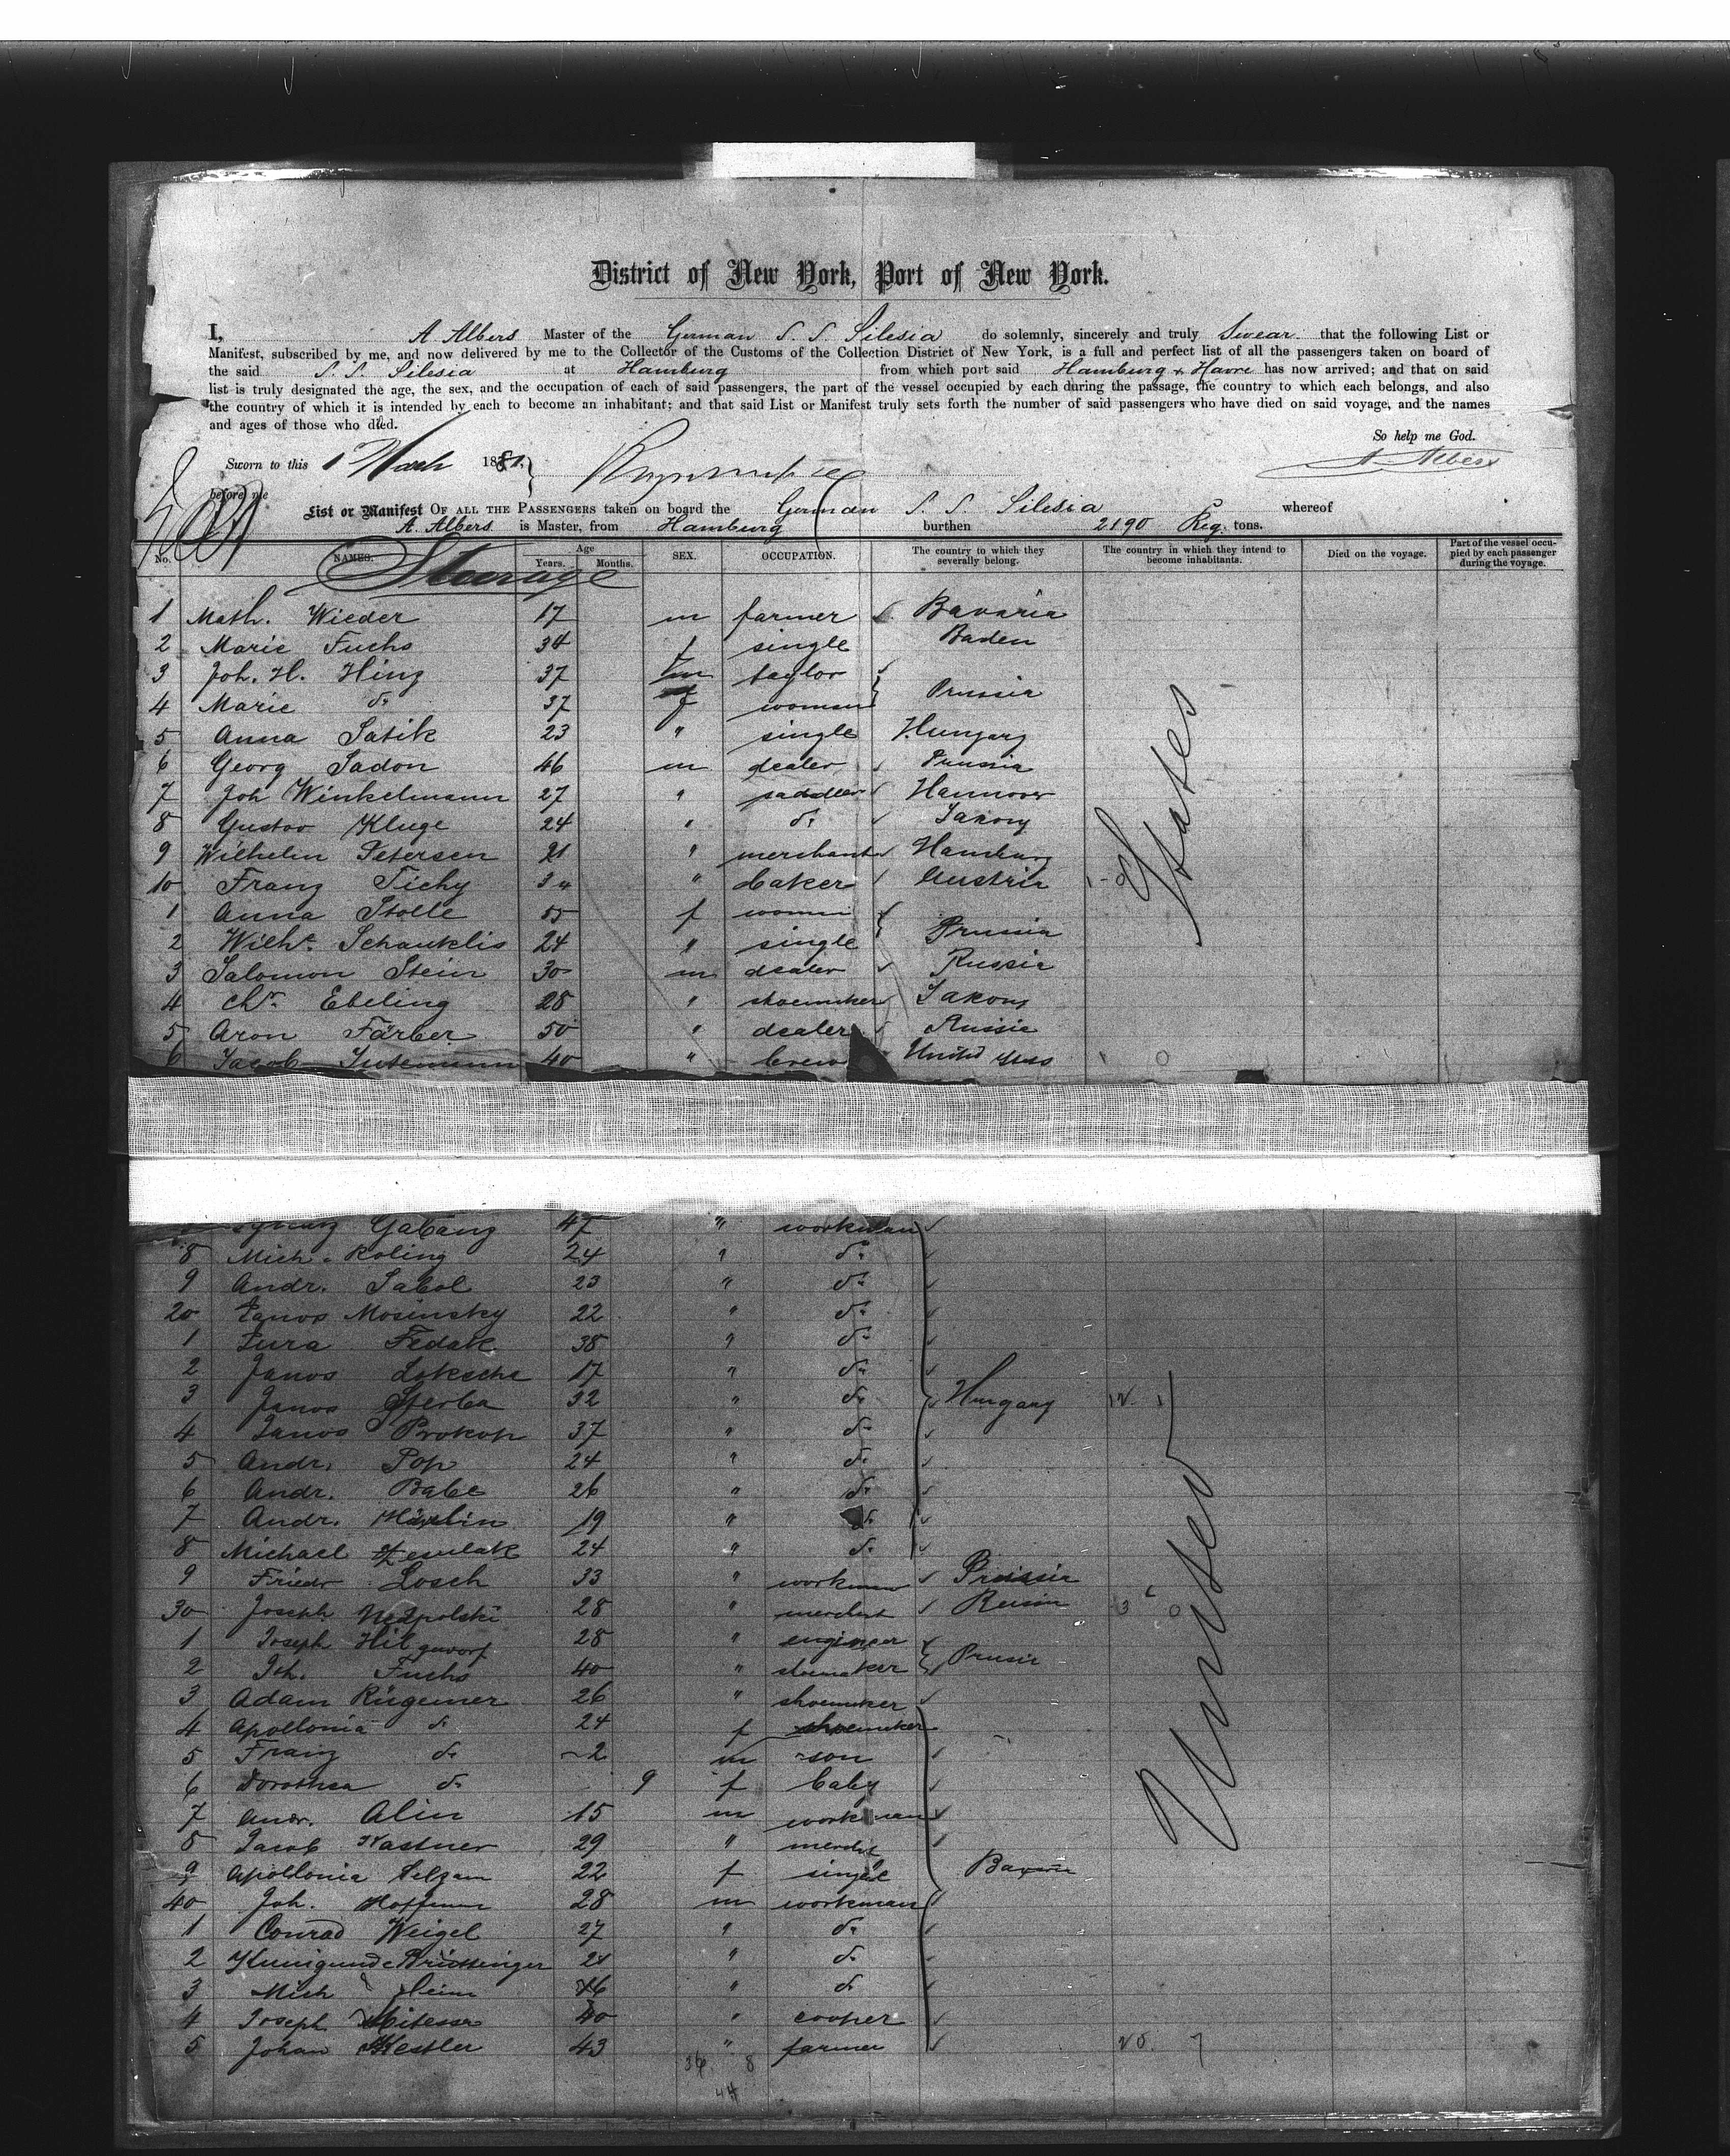 District of New York, Port of New York.
I, A Albers Master of the German S. S. Silesia do solemnly, sincerely and truly Swear that the following List or
Manifest, subscribed by me, and now delivered by me to the Collector of the Customs of the Collection District of New York, is a full and perfect list of all the passengers taken on board of
the said S. S. Silesia at Hamburg from which port said Hamburg & Havre has now arrived; and that on said
list is truly designated the age, the sex, and the occupation of each of said passengers, the part of the vessel occupied by each during the passage, the country to which each belongs, and also
the country of which it is intended by each to become an inhabitant; and that said List or Manifest truly sets forth the number of said passengers who have died on said voyage, and the names
and ages of those who died.
So help me God.
Sworn to this 1 March 1881. A Albers
before me
List or Manifest OF ALL THE PASSENGERS taken on board the German S. S. Silesia whereof
A. Albers is Master, from Hamburg burthen 2190 Reg. tons.
No. NAMES. Age Years. Months. SEX. OCCUPATION. The country to which they severally belong. The country in which they intend to become inhabitants. Died on the voyage. Part of the vessel occupied by each passenger during the voyage.
Steerage
1 Math. Wieder 17 m farmer Bavaria
2 Marie Fuchs 34 f single Baden
3 Joh. H. Hinz 37 m taylor
4 Marie do 37 f woman Prussia
5 Anna Satik 23 " single Hungary
6 Georg Sadon 46 m dealer Prussia
7 Joh Winkelmann 27 " saddler Hannover
8 Gustav Kluge 24 " do Saxony
9 Wilhelm Petersen 21 " merchant Hamburg
10 Franz Tichy 34 " baker Austria
1 Anna Stolle 55 f woman
2 Wilhe. Schauklis 24 " single Prussia
3 Salomon Stein 30 m dealer Russia
4 Chr. Ebeling 28 " shoemker Saxony
5 Aron Färber 50 " dealer Russia
6 Jacob 40 " brew United States
Gabanz 47 " workman
8 Mich. Roling 24 " do
9 Andr. Sabol 23 " do
20 Janos Mosinsky 22 " do
1 Jura Fedak 38 " do
2 Janos Lokscha 17 " do
3 Janos Sterba 32 " do Hungary
4 Janos Prokop 37 " do
5 Andr. Pop 24 " do
6 Andr. Babe 26 " do
7 Andr. 19 " do
8 Michael 24 " do
9 Friedr Losch 33 " workman Prussia
30 Joseph Nedpolski 28 " merchnt Russia
1 Joseph Hilgworf 28 " engineer
2 Joh. Fuchs 40 " shomaker Prussia
3 Adam Rügemer 26 " shoemker
4 Apollonia do 24 f shoemker
5 Franz do 2 m son
6 Dorothea do 9 f baby
7 Andr. Alin 15 m workman
8 Jacob Kastner 29 " mercht
9 Apollonia Selzam 22 f single Bavaria
40 Joh. Hoffmann 28 m workman
1 Conrad Weigel 27 " do
2 Kunigunde 24 " do
3 Mich Heim 26 " do
4 Joseph Mitesser 40 " cooper
5 Johan Kestler 43 " farmer
36 8
44
United States